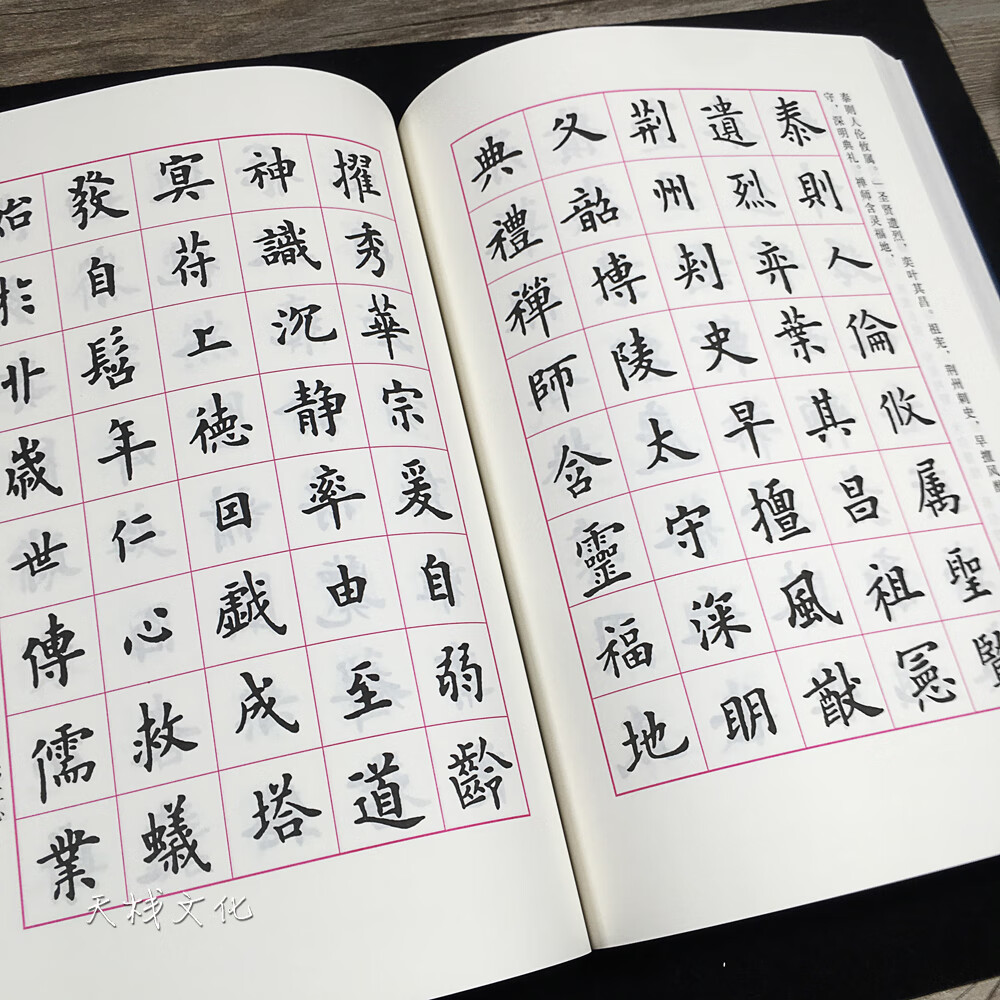 泰则人伦攸属。圣贤遗烈，奕叶其昌。祖宪，荆州刺史，早擅风
守，深明典礼。禅师含灵福地，
泰則人倫攸属聖賢
遺烈弈葉其昌祖憲
荆州刾史早擅風猷
父韶博陵太守深明
典禮禪師含靈福地
擢秀華宗爰自弱齡
神識沉静率由至道
冥苻上德囙戯成塔
發自髫年仁心救蟻
始於丱歲世傳儒業
天栈文化